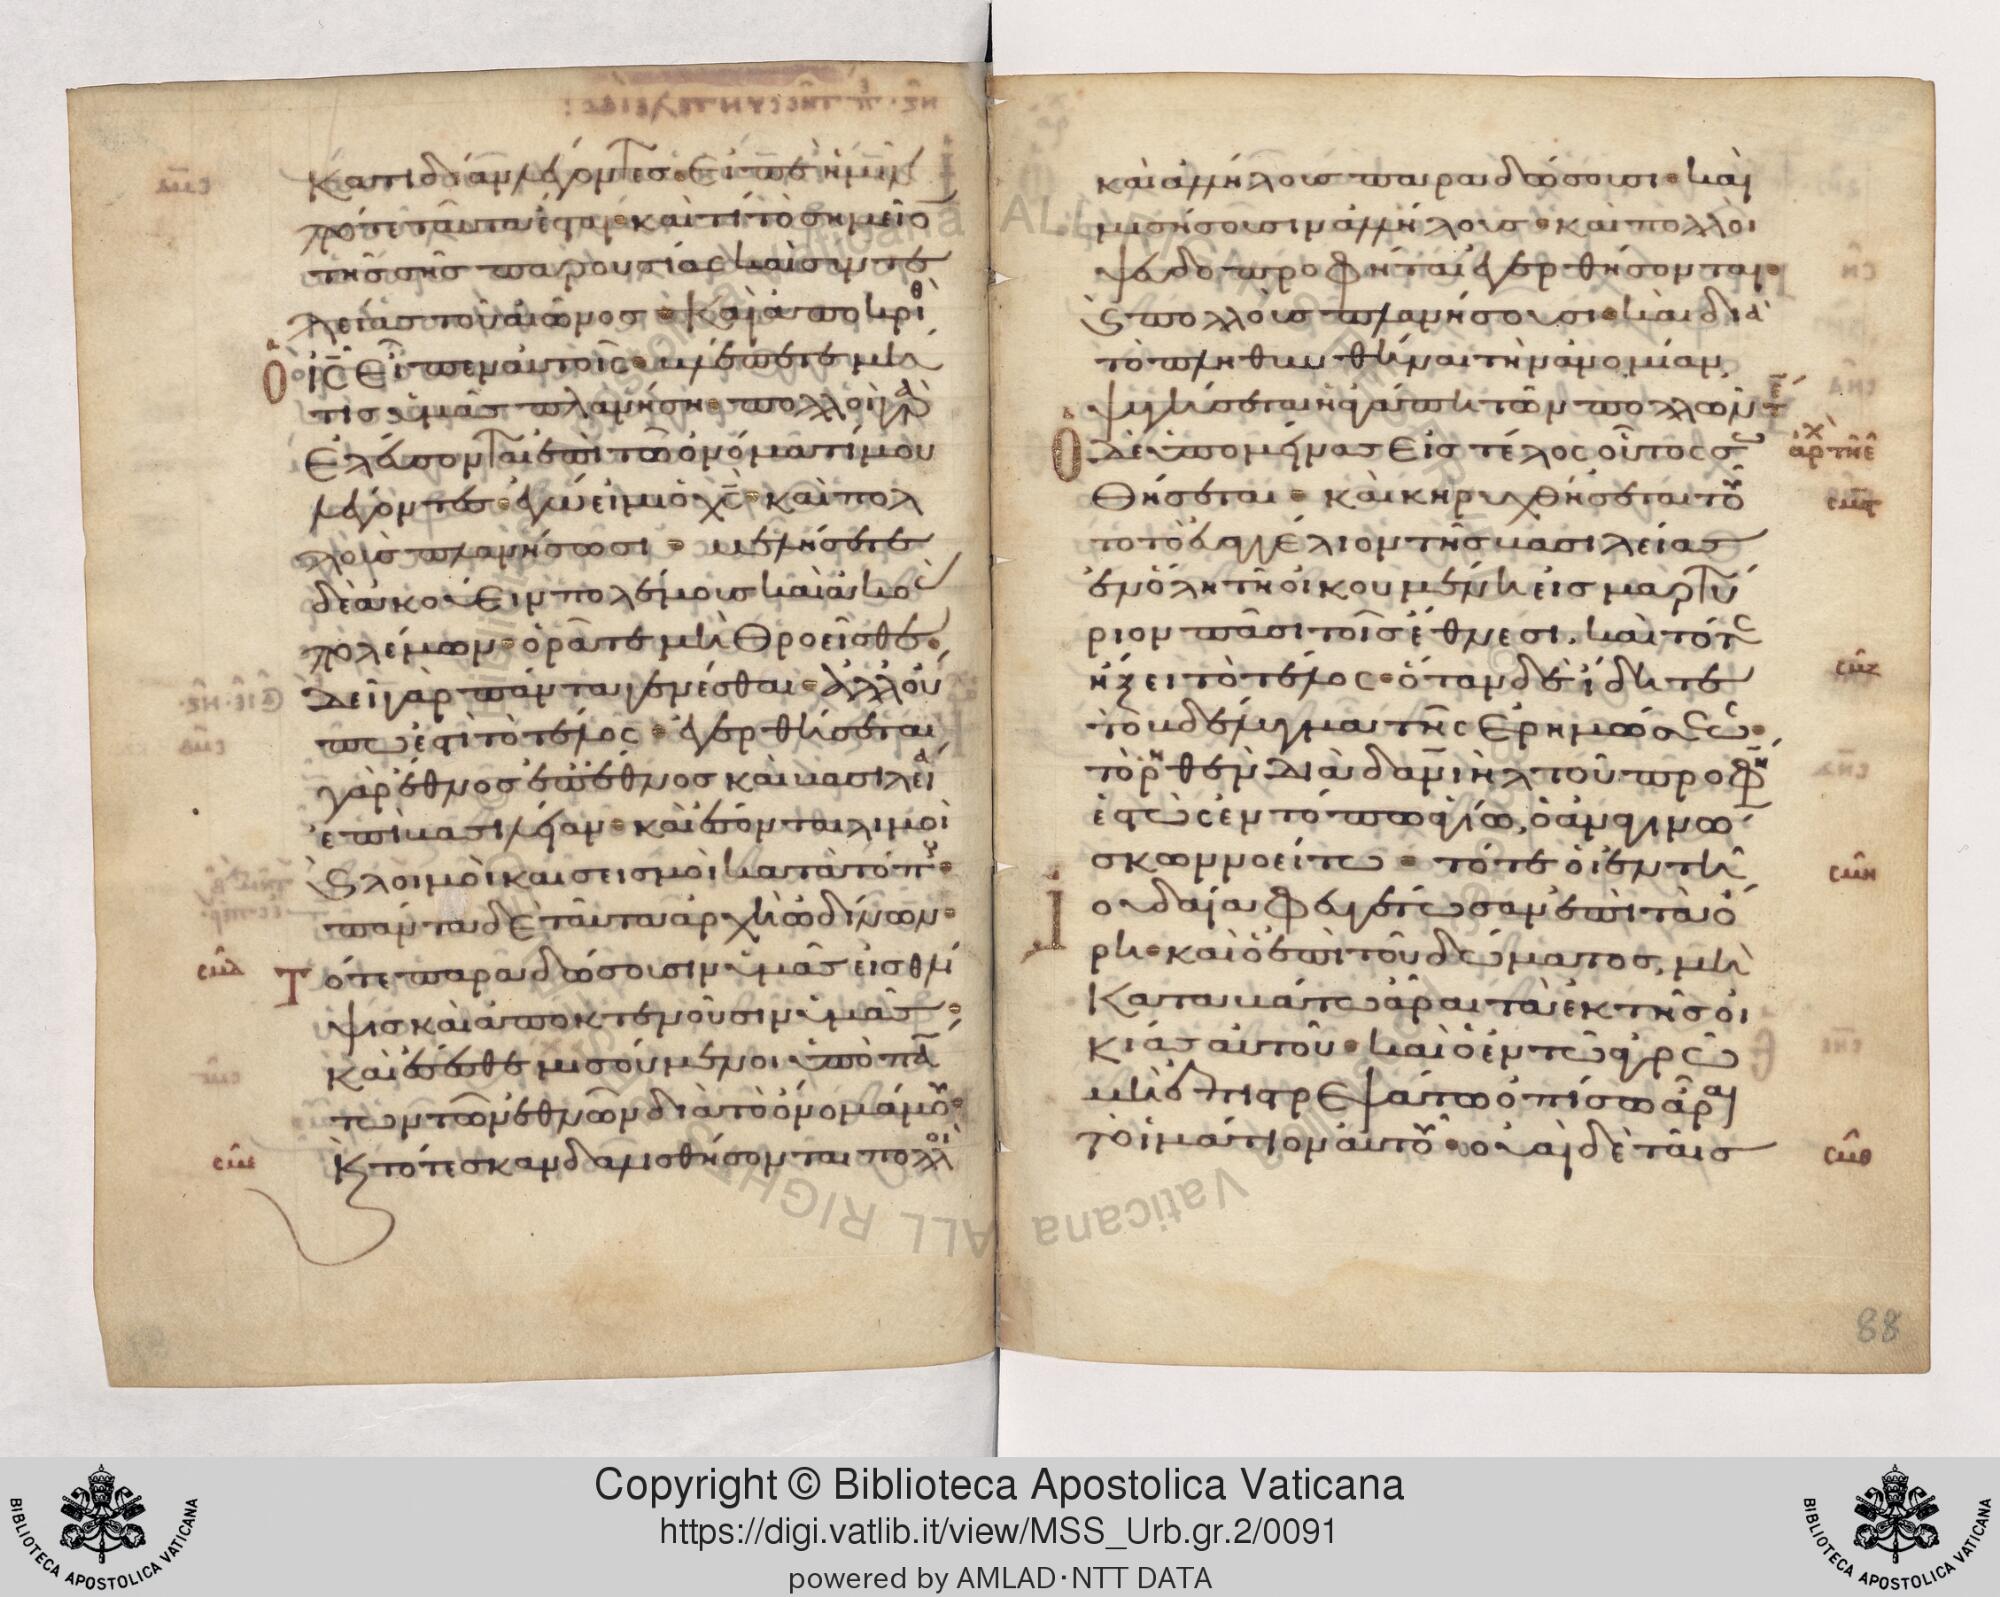 κατιδίαν λέγοντες· Εἰπὲ ἡμῖν
πότε ταῦτα ἔσται· καὶ τί τὸ σημεῖο
τῆς σῆς παρουσίας καὶ συντε
λείας τοῦ αἰῶνος· Καὶ ἀποκριθ
ὁ ις Εἶπεν αὐτοῖς· βλέπετε μή
τις ὑμᾶς πλανήση· πολλοὶ γὰρ
Ελεύσονται ἐπὶ τῶ ὀνόματί μου
λέγοντες· ἐγώ εἰμι ὁ χς· καὶ πολ
λοὺς πλανήσωσι· μελλήσετε
δὲ ἀκούειν πολέμους καὶ ἀκοὰς
πολέμων· ὁρᾶτε μὴ Θροεῖσθε·
Δεῖ γὰρ πάντα γενέσθαι· ἀλλ' οὔ
πω ἐστὶ τὸ τέλος· ἐγερθήσεται
γὰρ ἔθνος ἐπὶ ἔθνος καὶ βασιλεία
ἐπὶ βασιλείαν· καὶ ἔσονται λιμοὶ
καὶ λοιμοὶ καὶ σεισμοὶ κατὰ τόπους·
πάντα δὲ ταῦτα ἀρχὴ ὠδίνων·
Τότε παραδώσουσιν ὑμᾶς εἰς θλί
σμδ
ψις καὶ ἀποκτενοῦσιν ὑμᾶς·
καὶ ἔσεσθε μισούμενοι ὑπὸ πάν
των τῶν ἐθνῶν διὰ τὸ ὄνομά μου·
Κ τότε σκανδαλισθήσονται πολλοὶ
σμε
καὶ ἀλλήλους παραδώσουσι· καὶ
μισήσουσιν ἀλλήλους· καὶ πολλοὶ
ψευδοπροφῆται ἐγερθήσονται·
καὶ πολλοὺς πλανήσουσι· καὶ διὰ
τὸ πληθυνθῆναι τὴν ἀνομίαν
ψυγήσεται ἡ ἀγάπη τῶν πολλῶν·
Ο δὲ ὑπομείνας Εἰς τέλος οὗτος σω
ἀρχ τῆς ε
Θήσεται· καὶ κηρυχθήσεται τοῦ
σμς
το τὸ εὐαγγέλιον τῆς βασιλείας
ἐν ὅλη τῆ οἰκουμένη εἰς μαρτύ
ριον πᾶσι τοῖς ἔθνεσι. καὶ τότε
ἥξει τὸ τέλος· ὅταν δὲ ἴδητε
σμζ
τὸ βδέλυγμα τῆς Ερημώσεως·
τὸ ρηθὲν Διὰ δανιὴλ τοῦ προφη
ἑστὼς ἐν τόπω ἁγίω, ὁ ἀναγινώ
σκων νοείτω· τότε οἱ ἐν τῆ
σμη
Ιουδαία φευγέτωσαν ἐπὶ τὰ ὄ
ρη· καὶ ὁ ἐπὶ τοῦ δώματος, μὴ
Καταβάτω ἆραι τὰ ἐκ τῆς οἰ
κίας αὐτοῦ· καὶ ὁ ἐν τῶ ἀγρῶ
μὴ ἐπιστρεψάτω ὀπίσω ἆραι
τὸ ἱμάτιον αὐτοῦ· οὐαὶ δὲ ταῖς
σμθ
88
Copyright © Biblioteca Apostolica Vaticana
https://digi.vatlib.it/view/MSS_Urb.gr.2/0091
powered by AMLAD·NTT DATA
BIBLIOTECA APOSTOLICA VATICANA
BIBLIOTECA APOSTOLICA VATICANA